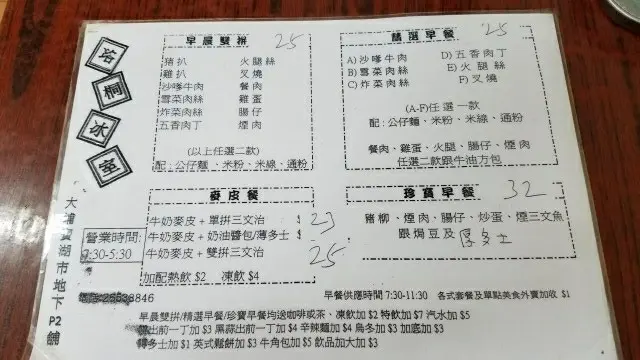 洛桐冰室
大埔寶湖市地下P2舖
營業時間:
7:30-5:30
早晨雙拼 25
豬扒 火腿絲
雞扒 叉燒
沙嗲牛肉 餐肉
雪菜肉絲 雞蛋
炸菜肉絲 腸仔
五香肉丁 煙肉
(以上任選二款)
配:公仔麵、米粉、米線、通粉
精選早餐 25
A)沙嗲牛肉 D)五香肉丁
B)雪菜肉絲 E)火腿絲
C)炸菜肉絲 F)叉燒
(A-F)任選一款
配:公仔麵、米粉、米線、通粉
餐肉、雞蛋、火腿、腸仔、煙肉
任選二款跟牛油方包
麥皮餐
牛奶麥皮+單拼三文治 $ 23
牛奶麥皮+奶油醬包/薄多士
牛奶麥皮+雙拼三文治 25
加配熱飲 $2 凍飲 $4
珍寶早餐 32
豬柳、煙肉、腸仔、炒蛋、煙三文魚
跟焗豆及厚多士
早餐供應時間 7:30-11:30 各式套餐及單點美食外賣加收 $1
早晨雙拼/精選早餐/珍寶早餐均送咖啡或茶、凍飲加 $2 特飲加 $7 汽水加 $5
出前一丁加 $3 黑蒜出前一丁加 $4 辛辣麵加 $4 烏冬加 $3 加底加 $3
多士加 $1 英式鬆餅加 $3 牛角包加 $5 飲品加大加 $3